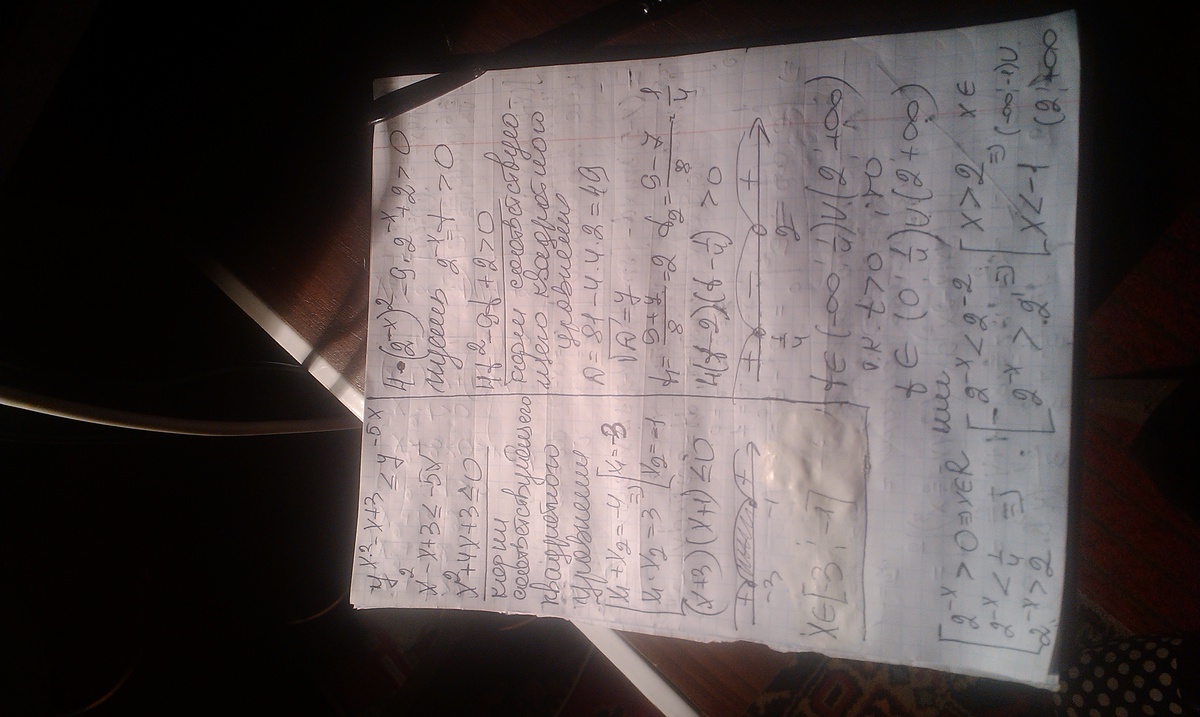 7^x²-x+3 ≤ 7^-5x
x²-x+3 ≤ -5x
x²+4x+3 ≤ 0
корни
соответствующего
квадратного
уравнения
[x₁+x₂=-4 => [x₁=-3
[x₁·x₂=3 [x₂=-1
(x+3)(x+1) ≤ 0
+ - +
-3 -1
x∈[-3;-1]
4·(2^-x)²-9·2^-x+2>0
пусть 2^-x=t>0
4t²-9t+2>0
корни соответствую-
щего квадратного
уравнения
D=81-4·4·2=49
√D=7
t₁=(9+7)/8=2 t₂=(9-7)/8=1/4
4(t-2)(t-1/4)>0
+ - +
1/4 2
t∈(-∞;1/4)∪(2;+∞)
т.к. t>0, то
t∈(0;1/4)∪(2;+∞)
[2^-x>0=>x∈R или
2^-x<1/4 =>
2^-x>2
[2^-x<2^-2 => [x>2 => x∈
[2^-x>2^1 [x<-1 (-∞;-1)∪
(2;+∞)